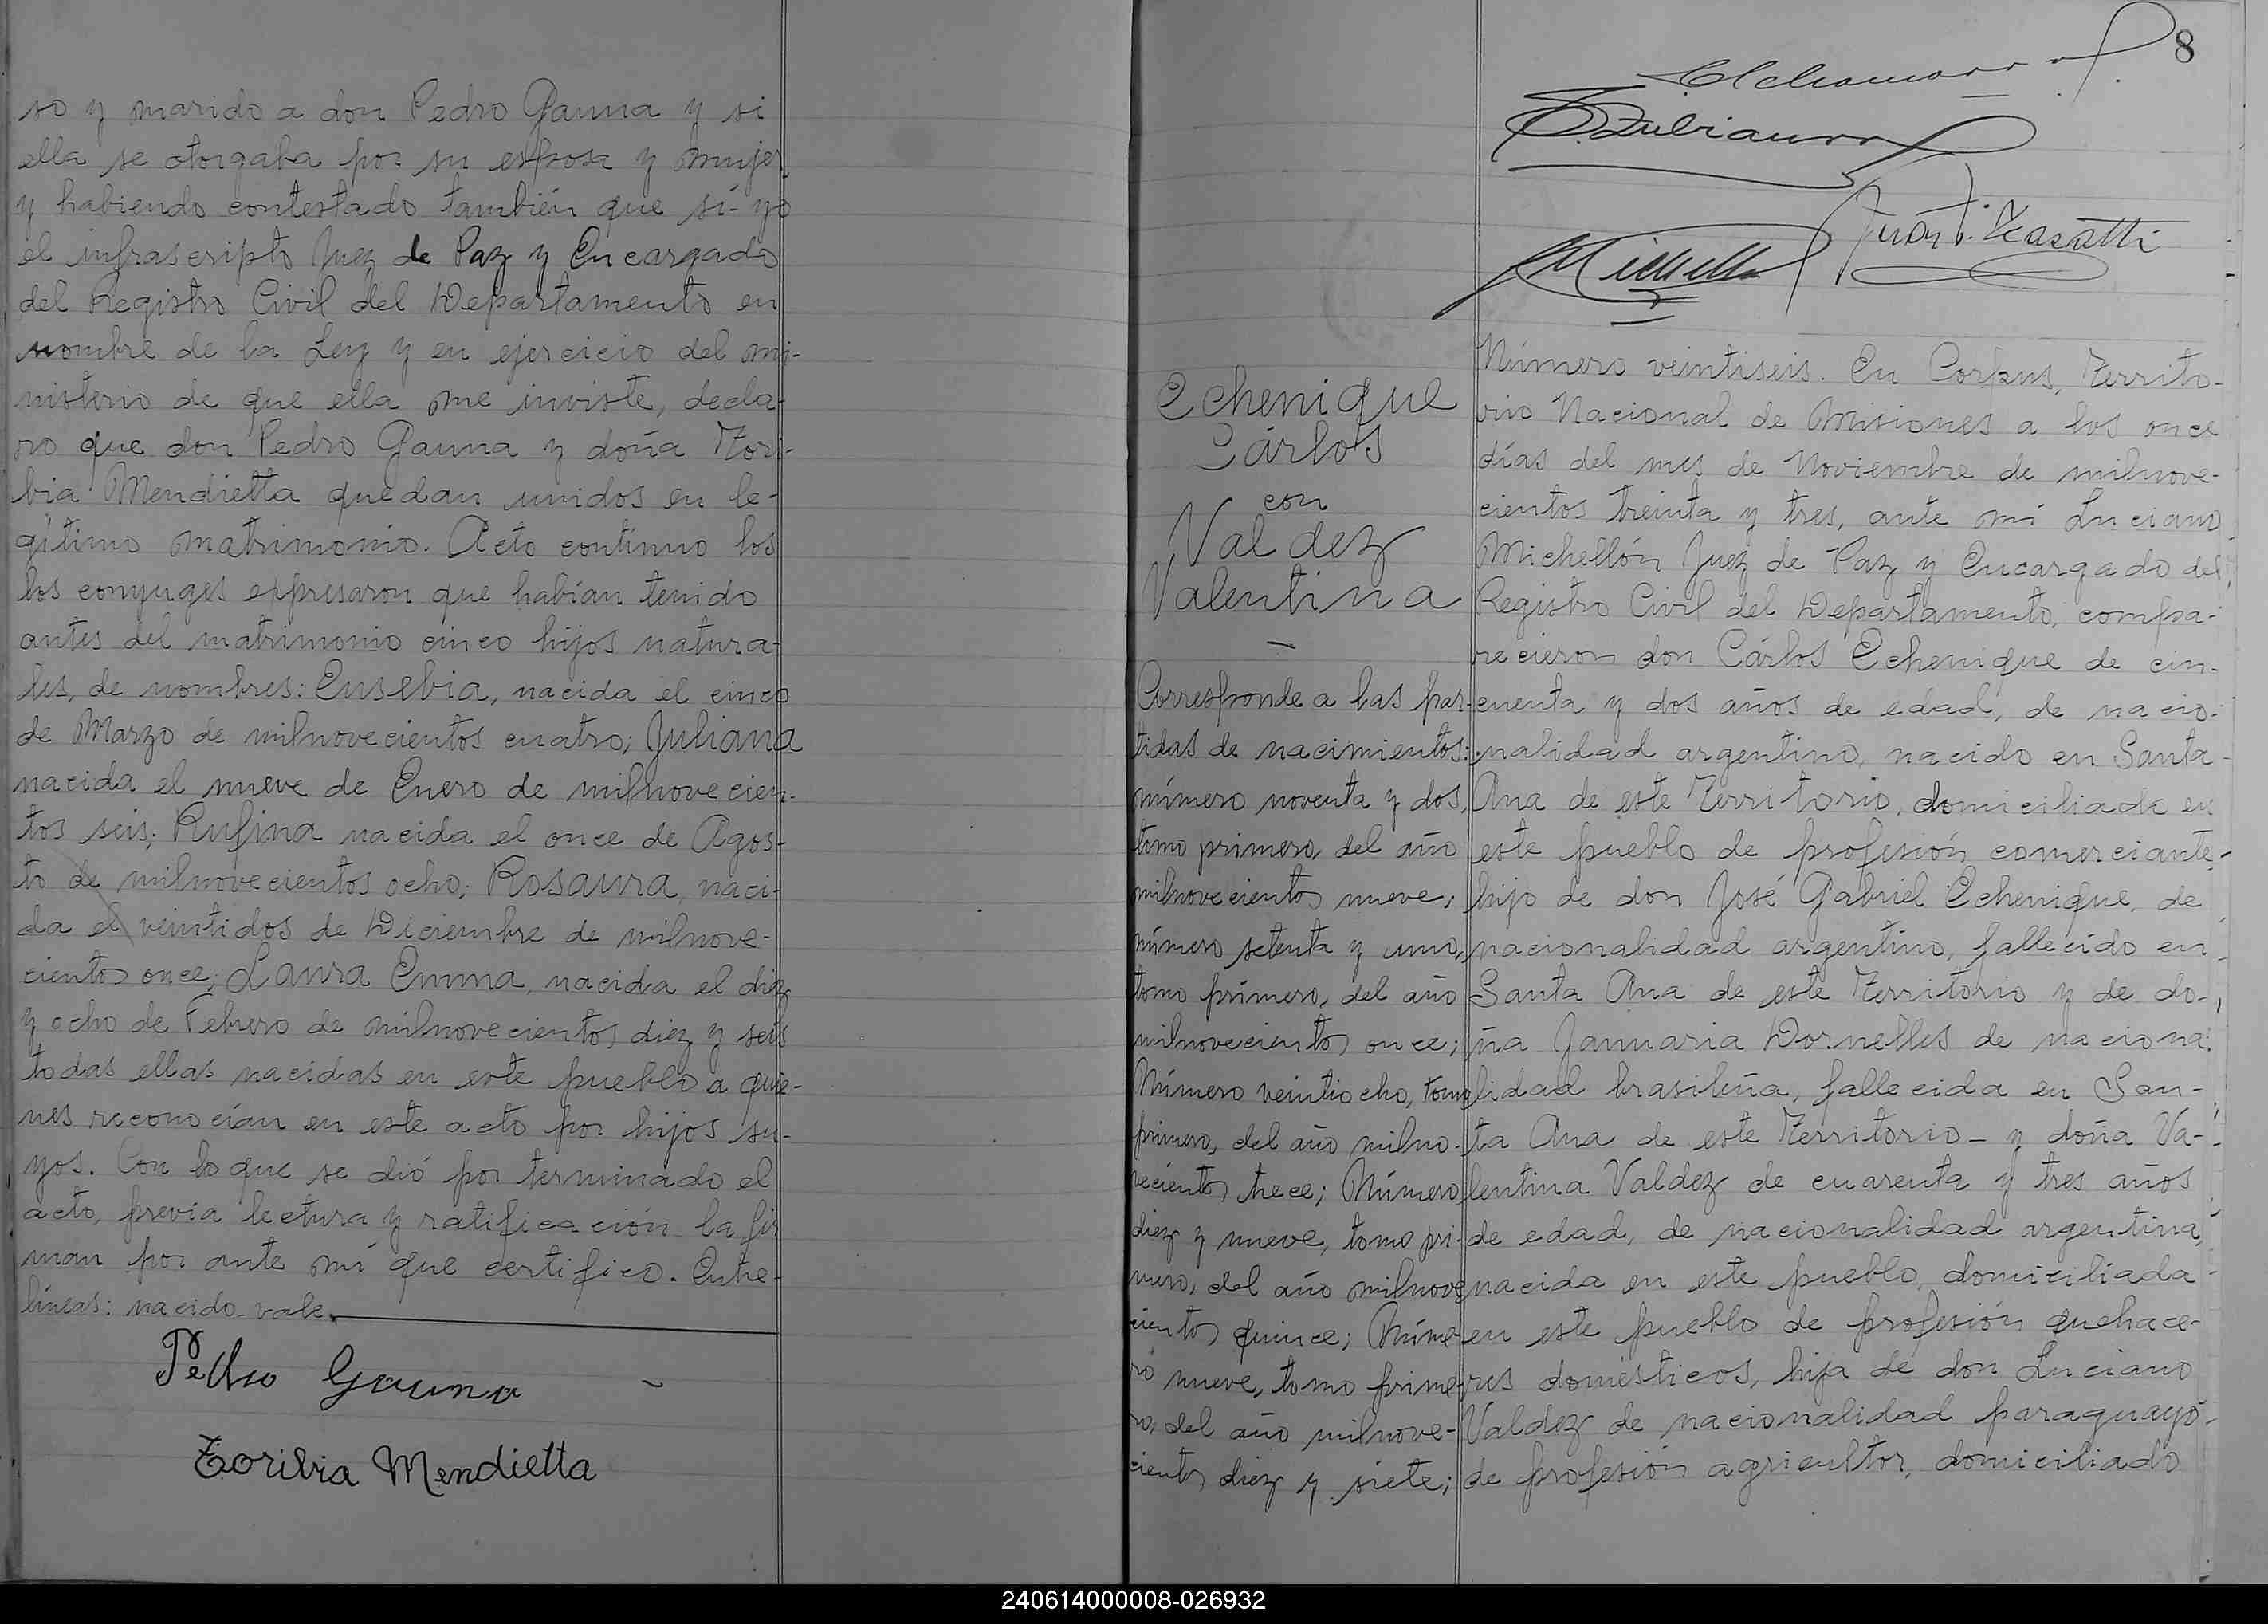 so y marido a don Pedro Gauna y si
ella se otorgaba por su esposa y mujer
y habiendo contestado también que sí- yo
el infrascripto Juez de Paz y Encargado
del Registro Civil del Departamento en
nombre de la Ley y en ejercicio del mi-
nisterio de que ella me inviste, decla-
ro que don Pedro Gauna y doña Tori-
bia Mendietta quedan unidos en le-
gítimo matrimonio. Acto contínuo los
los conyuges expresaron que habían tenido
antes del matrimonio cinco hijos natura-
les, de nombres: Eusebia, nacida el cinco
de Marzo de milnovecientos cuatro; Juliana
nacida el nueve de Enero de milnovecien-
tos seis; Rufina nacida el once de Agos-
to de milnovecientos ocho; Rosaura, naci-
da el veintidos de Diciembre de milnove-
cientos once; Laura Emma, nacida el diez
y ocho de Febrero de milnovecientos diez y seis
todas ellas nacidas en este pueblo a quie-
nes reconocían en este acto por hijos su-
yos. Con lo que se dió por terminado el
acto, previa lectura y ratificación la fir
man por ante mí que certifico. Entre-
líneas: nacido-vale.
Pedro Gauna
Toribia Mendietta
8
Zubiaurr
Juan
Michellon
Echenique
Cárlos
con
Valdez
Valentina
Corresponde a las par-
tidas de nacimientos:
número noventa y dos,
tomo primero, del año
milnovecientos nueve;
número setenta y uno,
tomo primero, del año
milnovecientos once;
Número veintiocho, tomo
primero, del año milno-
vecientos trece; Número
diez y nueve, tomo pri-
mero, del año milnove
cientos quince; Núme-
ro nueve, tomo prime-
ro, del año milnove-
cientos diez y siete;
Número veintiseis. En Corpus, Territo-
rio Nacional de Misiones a los once
días del mes de Noviembre de milnove-
cientos treinta y tres, ante mí Luciano
Michellón Juez de Paz y Encargado del
Registro Civil del Departamento, compa-
recieron don Cárlos Echenique de cin-
cuenta y dos años de edad, de nacio-
nalidad argentino, nacido en Santa
Ana de este Territorio, domiciliado en
este pueblo de profesión comerciante,
hijo de don José Gabriel Echenique, de
nacionalidad argentino, fallecido en
Santa Ana de este Territorio y de do-
ña Januaria Dornelles de naciona-
lidad brasileña, fallecida en San-
ta Ana de este Territorio - y doña Va-
lentina Valdez de cuarenta y tres años
de edad, de nacionalidad argentina,
nacida en este pueblo, domiciliada
en este pueblo de profesión quehace-
res domésticos, hija de don Luciano
Valdez de nacionalidad paraguayo
de profesión agricultor, domiciliado
240614000008-026932